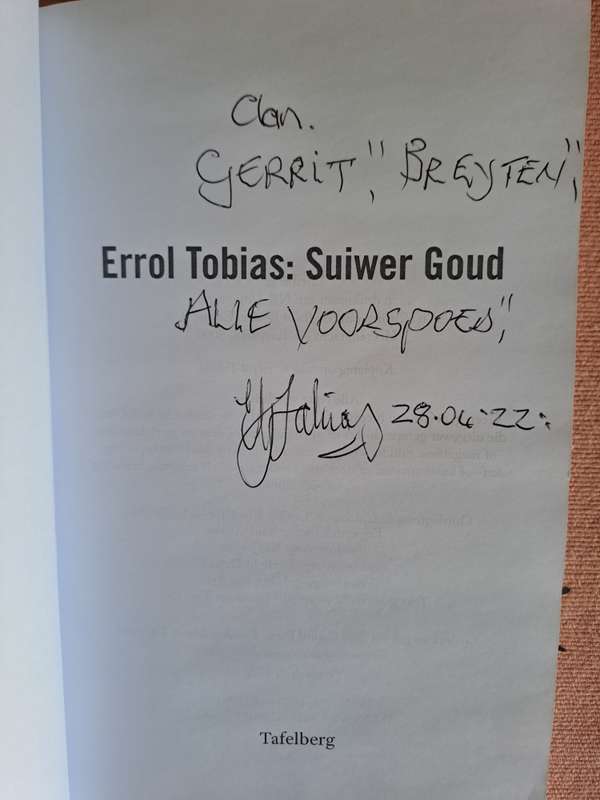 Aan.
GERRIT," BREYTEN",
Errol Tobias: Suiwer Goud
ALLE VOORSPOED",
28.04.22.
Tafelberg